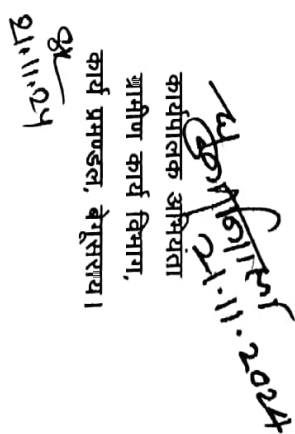 21.11.2024
कार्यपालक अभियंता
ग्रामीण कार्य विभाग,
कार्य प्रमण्डल, बेगूसराय।
21.11.24